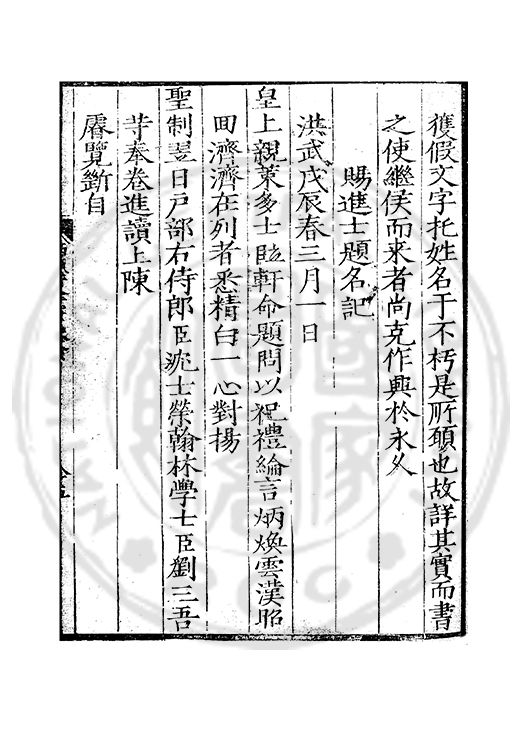 獲假文字托姓名于不朽是所願也故詳其實而書
之使繼侯而来者尚克作興於永久
賜進士題名記
洪武戊辰春三月一日
皇上親策多士臨軒命題問以祀禮綸言炳煥雲漢昭
囬濟濟在列者悉精白一心對揚
聖制翌日戸部右侍郎臣沈士榮翰林學士臣劉三吾
等奉卷進讀上陳
睿覽斷自